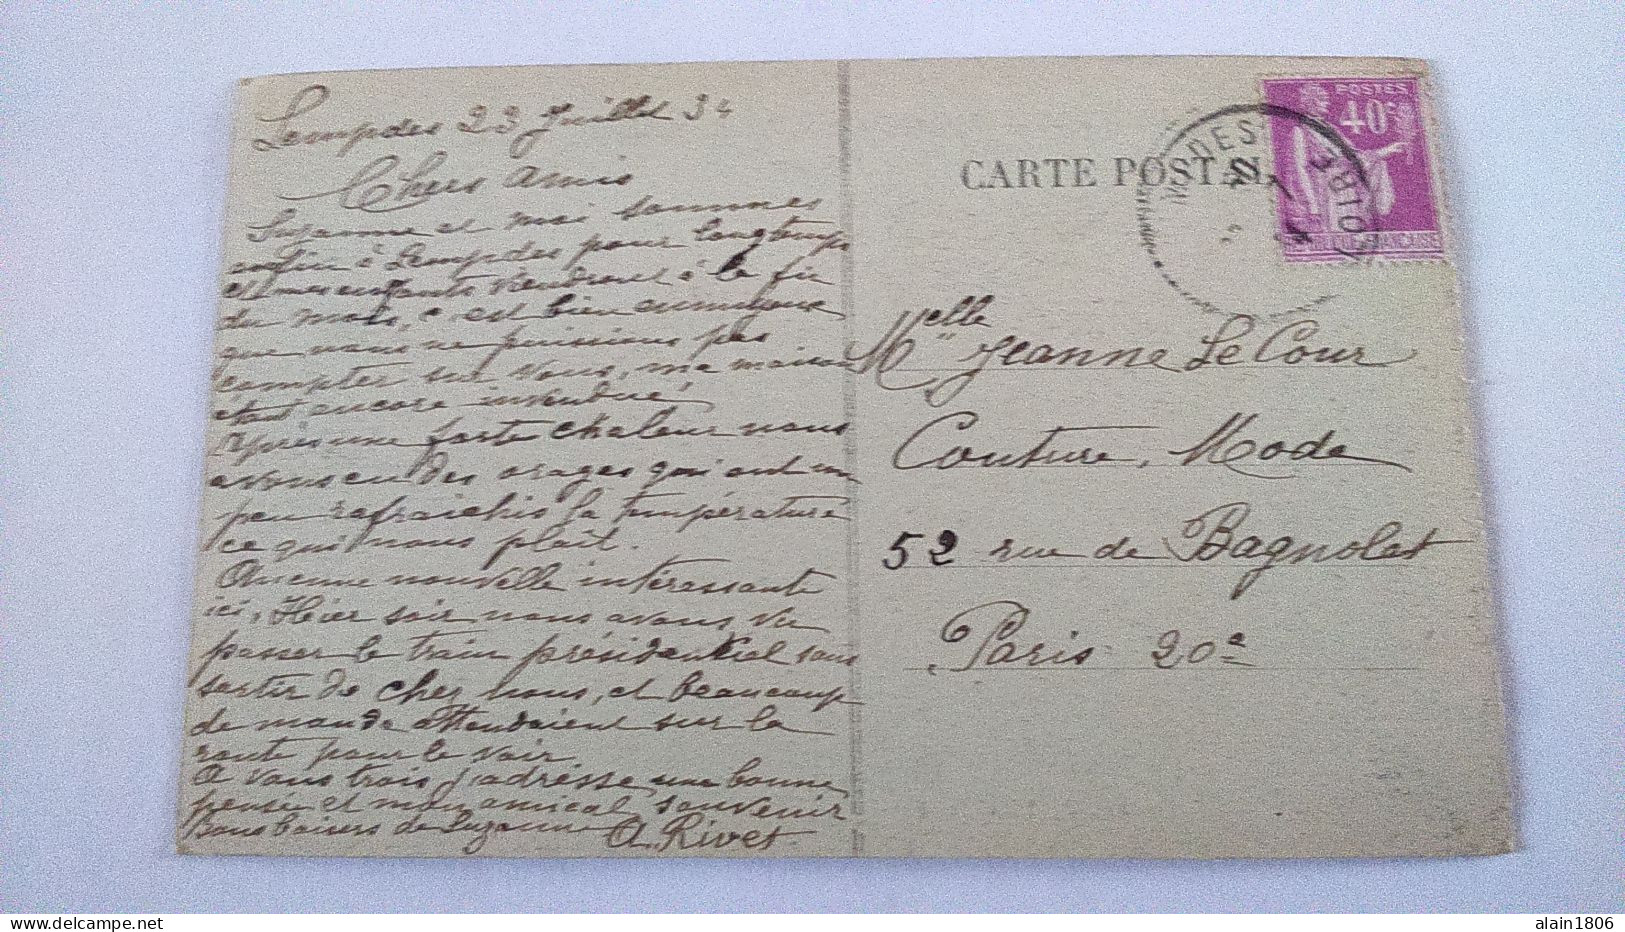 Lempdes 23 Juillet 34
Chers amis
Suzanne et moi sommes
enfin à Lempdes pour longtemps
et mes enfants viendront à la fin
du mois, c'est bien ennuyeux
que nous ne puissions pas
compter sur vous, ma maison
étant encore invendue
Après une forte chaleur nous
avons eu des orages qui ont un
peu rafraichis la température
ce qui nous plait.
Aucune nouvelle intéressante
ici, Hier soir nous avons vu
passer le train présidentiel sans
sortir de chez nous, et beaucoup
de monde attendaient sur la
route pour le voir
A vous trois j'adresse une bonne
pensée et mon amical souvenir
Bons baisers de Suzanne A. Rivet
CARTE POSTALE
POSTES
40c
DES
LOIRE
Melle Jeanne Le Cour
Couture, Mode
52 rue de Bagnolet
Paris 20e
delcampe.net
alain1806